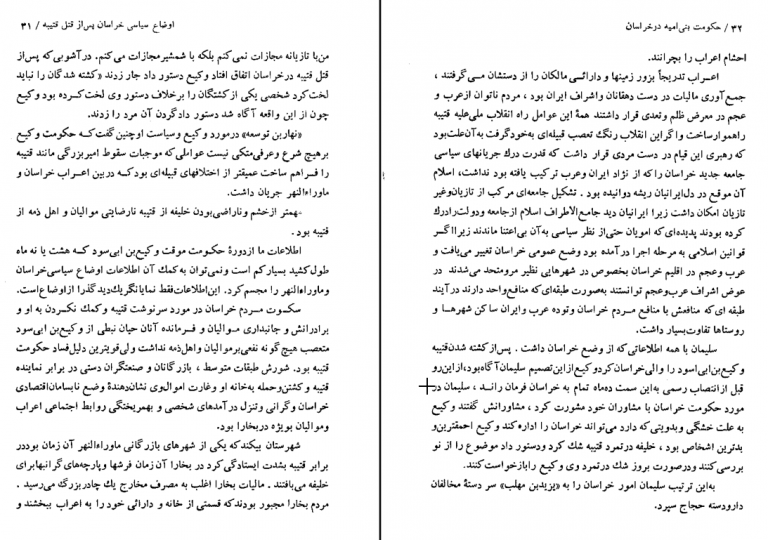 اوضاع سیاسی خراسان پس‌از قتل قتیبه / ۳۱
من‌با تازیانه مجازات نمی‌کنم بلکه با شمشیر مجازات می‌کنم. در آشوبی که پس‌از
قتل قتیبه در خراسان اتفاق افتاد وکیع دستور داد جار زدند «کشته شدگان را نباید
لخت کرد شخصی یکی از کشتگان را برخلاف دستور وی لخت کرده بود وکیع
چون از این واقعه آگاه شد دستور داد گردن آن مرد را زدند.
«نهار بن توسعه» در مورد وکیع و سیاست او چنین گفت که حکومت وکیع
بر هیچ شرع و عرفی متکی نیست عواملی که موجبات سقوط امیر بزرگی مانند قتیبه
را فراهم ساخت عمیقتر از اختلافهای قبیله‌ای بود که در بین اعراب خراسان و
ماوراءالنهر جریان داشت.
مهمتر از خشم و ناراضی بودن خلیفه از قتیبه نارضایتی موالیان و اهل ذمه از
قتیبه بود .
اطلاعات ما از دورهٔ حکومت موقت وکیع بن ابی سود که هشت یا نه ماه
طول کشید بسیار کم است و نمی‌توان به کمک آن اطلاعات اوضاع سیاسی خراسان
و ماوراءالنهر را مجسم کرد. این اطلاعات فقط نمایانگر یک دید گذرا از اوضاع است.
سکوت مردم خراسان در مورد سرنوشت قتیبه و کمک نکردن به او و
برادرانش و جانبداری موالیان و فرمانده آنان حیان نبطی از وکیع بن ابی سود
متعصب هیچ گونه نفعی بر موالیان و اهل ذمه نداشت ولی قویترین دلیل فساد حکومت
قتیبه بود. شورش طبقات متوسط ، بازرگانان و صنعتگران دستی در برابر نماینده
قتیبه و کشتن و حمله به خانه او و غارت اموال وی نشان‌دهندهٔ وضع نابسامان اقتصادی
خراسان و گرانی و تنزل درآمدهای شخصی و بهم‌ریختگی روابط اجتماعی اعراب
و موالیان بویژه در بخارا بود.
شهرستان بیکند که یکی از شهرهای بازرگانی ماوراءالنهر آن زمان بود در
برابر قتیبه بشدت ایستادگی کرد در بخارا آن زمان فرشها و پارچه‌های گرانبها برای
خلیفه می‌بافتند . مالیات بخارا اغلب به مصرف مخارج یک چادر بزرگ می‌رسید .
مردم بخارا مجبور بودند که قسمتی از خانه و دارائی خود را به اعراب ببخشند و
۳۲ / حکومت بنی‌امیه در خراسان
احشام اعراب را بچرانند.
اعراب تدریجاً بزور زمینها و دارائی مالکان را از دستشان می‌گرفتند ،
جمع آوری مالیات در دست دهقانان و اشراف ایران بود ، مردم ناتوان از عرب و
عجم در معرض ظلم و تعدی قرار داشتند همهٔ این عوامل راه انقلاب ملی علیه قتیبه
را هموار ساخت و اگر این انقلاب رنگ تعصب قبیله‌ای به خود گرفت به آن علت بود
که رهبری این قیام در دست مردی قرار داشت که قدرت درک جریانهای سیاسی
جامعه جدید خراسان را که از نژاد ایران و عرب ترکیب یافته بود نداشت، اسلام
آن موقع در دل ایرانیان ریشه دوانیده بود . تشکیل جامعه‌ای مرکب از تازیان و غیر
تازیان امکان داشت زیرا ایرانیان دید جامع‌الأطراف اسلام از جامعه و دولت را درک
کرده بودند پدیده‌ای که امویان حتی از نظر سیاسی به آن بی‌اعتنا ماندند زیرا اگر
قوانین اسلامی به مرحله اجرا در آمده بود وضع عمومی خراسان تغییر می‌یافت و
عرب و عجم در اقلیم خراسان بخصوص در شهرهایی نظیر مرو متحد می‌شدند در
عوض اشراف عرب و عجم توانستند به‌صورت طبقه‌ای که منافع واحد دارند در آیند
طبقه‌ای که منافعش با منافع مردم خراسان و توده عرب و ایران ساکن شهرها و
روستاها تفاوت بسیار داشت.
سلیمان با همه اطلاعاتی که از وضع خراسان داشت . پس‌از کشته شدن قتیبه
وکیع بن ابی اسود را والی خراسان کرد وکیع از این تصمیم سلیمان آگاه بود، از این رو
قبل از انتصاب رسمی به این سمت ده ماه تمام به خراسان فرمان راند ، سلیمان در
مورد حکومت خراسان با مشاوران خود مشورت کرد ، مشاورانش گفتند وکیع
به علت خشکی و بدویتی که دارد می‌تواند خراسان را اداره کند وکیع احمقترین و
بدترین اشخاص بود ، خلیفه در تمرد قتیبه شک کرد و دستور داد موضوع را از نو
بررسی کنند و در صورت بروز شک در تمرد وی وکیع را بازخواست کنند.
به این ترتیب سلیمان امور خراسان را به «یزید بن مهلب» سر دستهٔ مخالفان
دارودسته حجاج سپرد.